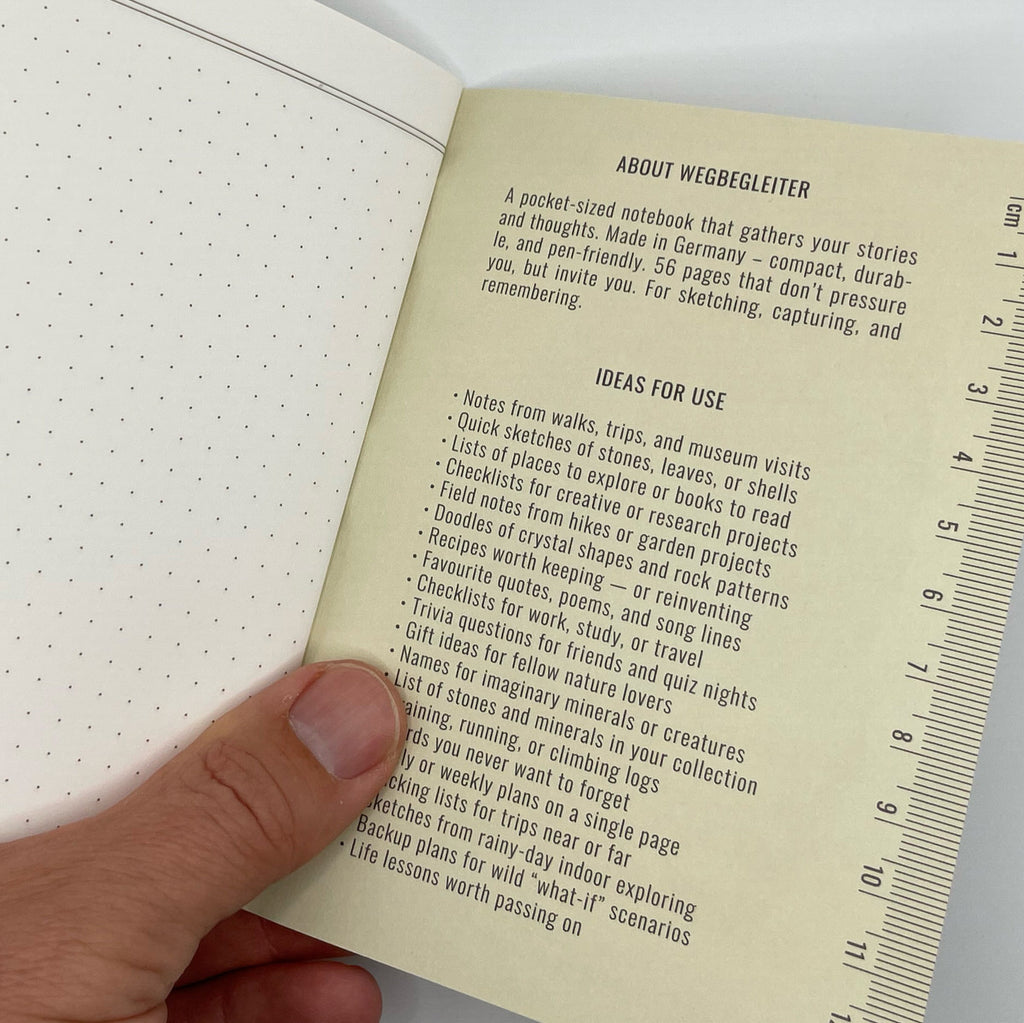 ABOUT WEGBEGLEITER
A pocket-sized notebook that gathers your stories
and thoughts. Made in Germany – compact, durab-
le, and pen-friendly. 56 pages that don't pressure
you, but invite you. For sketching, capturing, and
remembering.
IDEAS FOR USE
• Notes from walks, trips, and museum visits
• Quick sketches of stones, leaves, or shells
• Lists of places to explore or books to read
• Checklists for creative or research projects
• Field notes from hikes or garden projects
• Doodles of crystal shapes and rock patterns
• Recipes worth keeping — or reinventing
• Favourite quotes, poems, and song lines
• Checklists for work, study, or travel
• Trivia questions for friends and quiz nights
• Gift ideas for fellow nature lovers
• Names for imaginary minerals or creatures
• List of stones and minerals in your collection
running, or climbing logs
you never want to forget
or weekly plans on a single page
lists for trips near or far
Sketches from rainy-day indoor exploring
Backup plans for wild “what-if” scenarios
• Life lessons worth passing on
cm
1
2
3
4
5
6
7
8
9
10
11